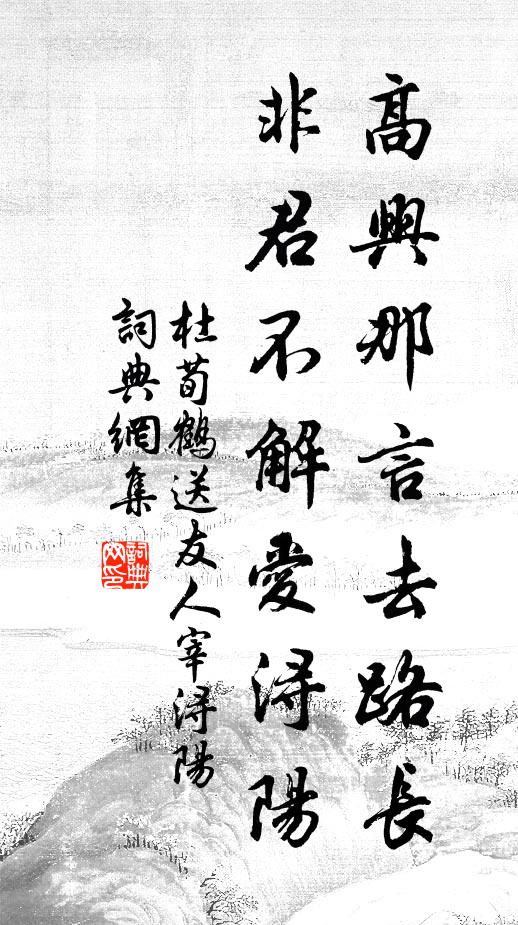 高興那言去路長
非君不解愛潯陽
杜荀鶴送友人宰潯陽
詞典網集
詞典网印